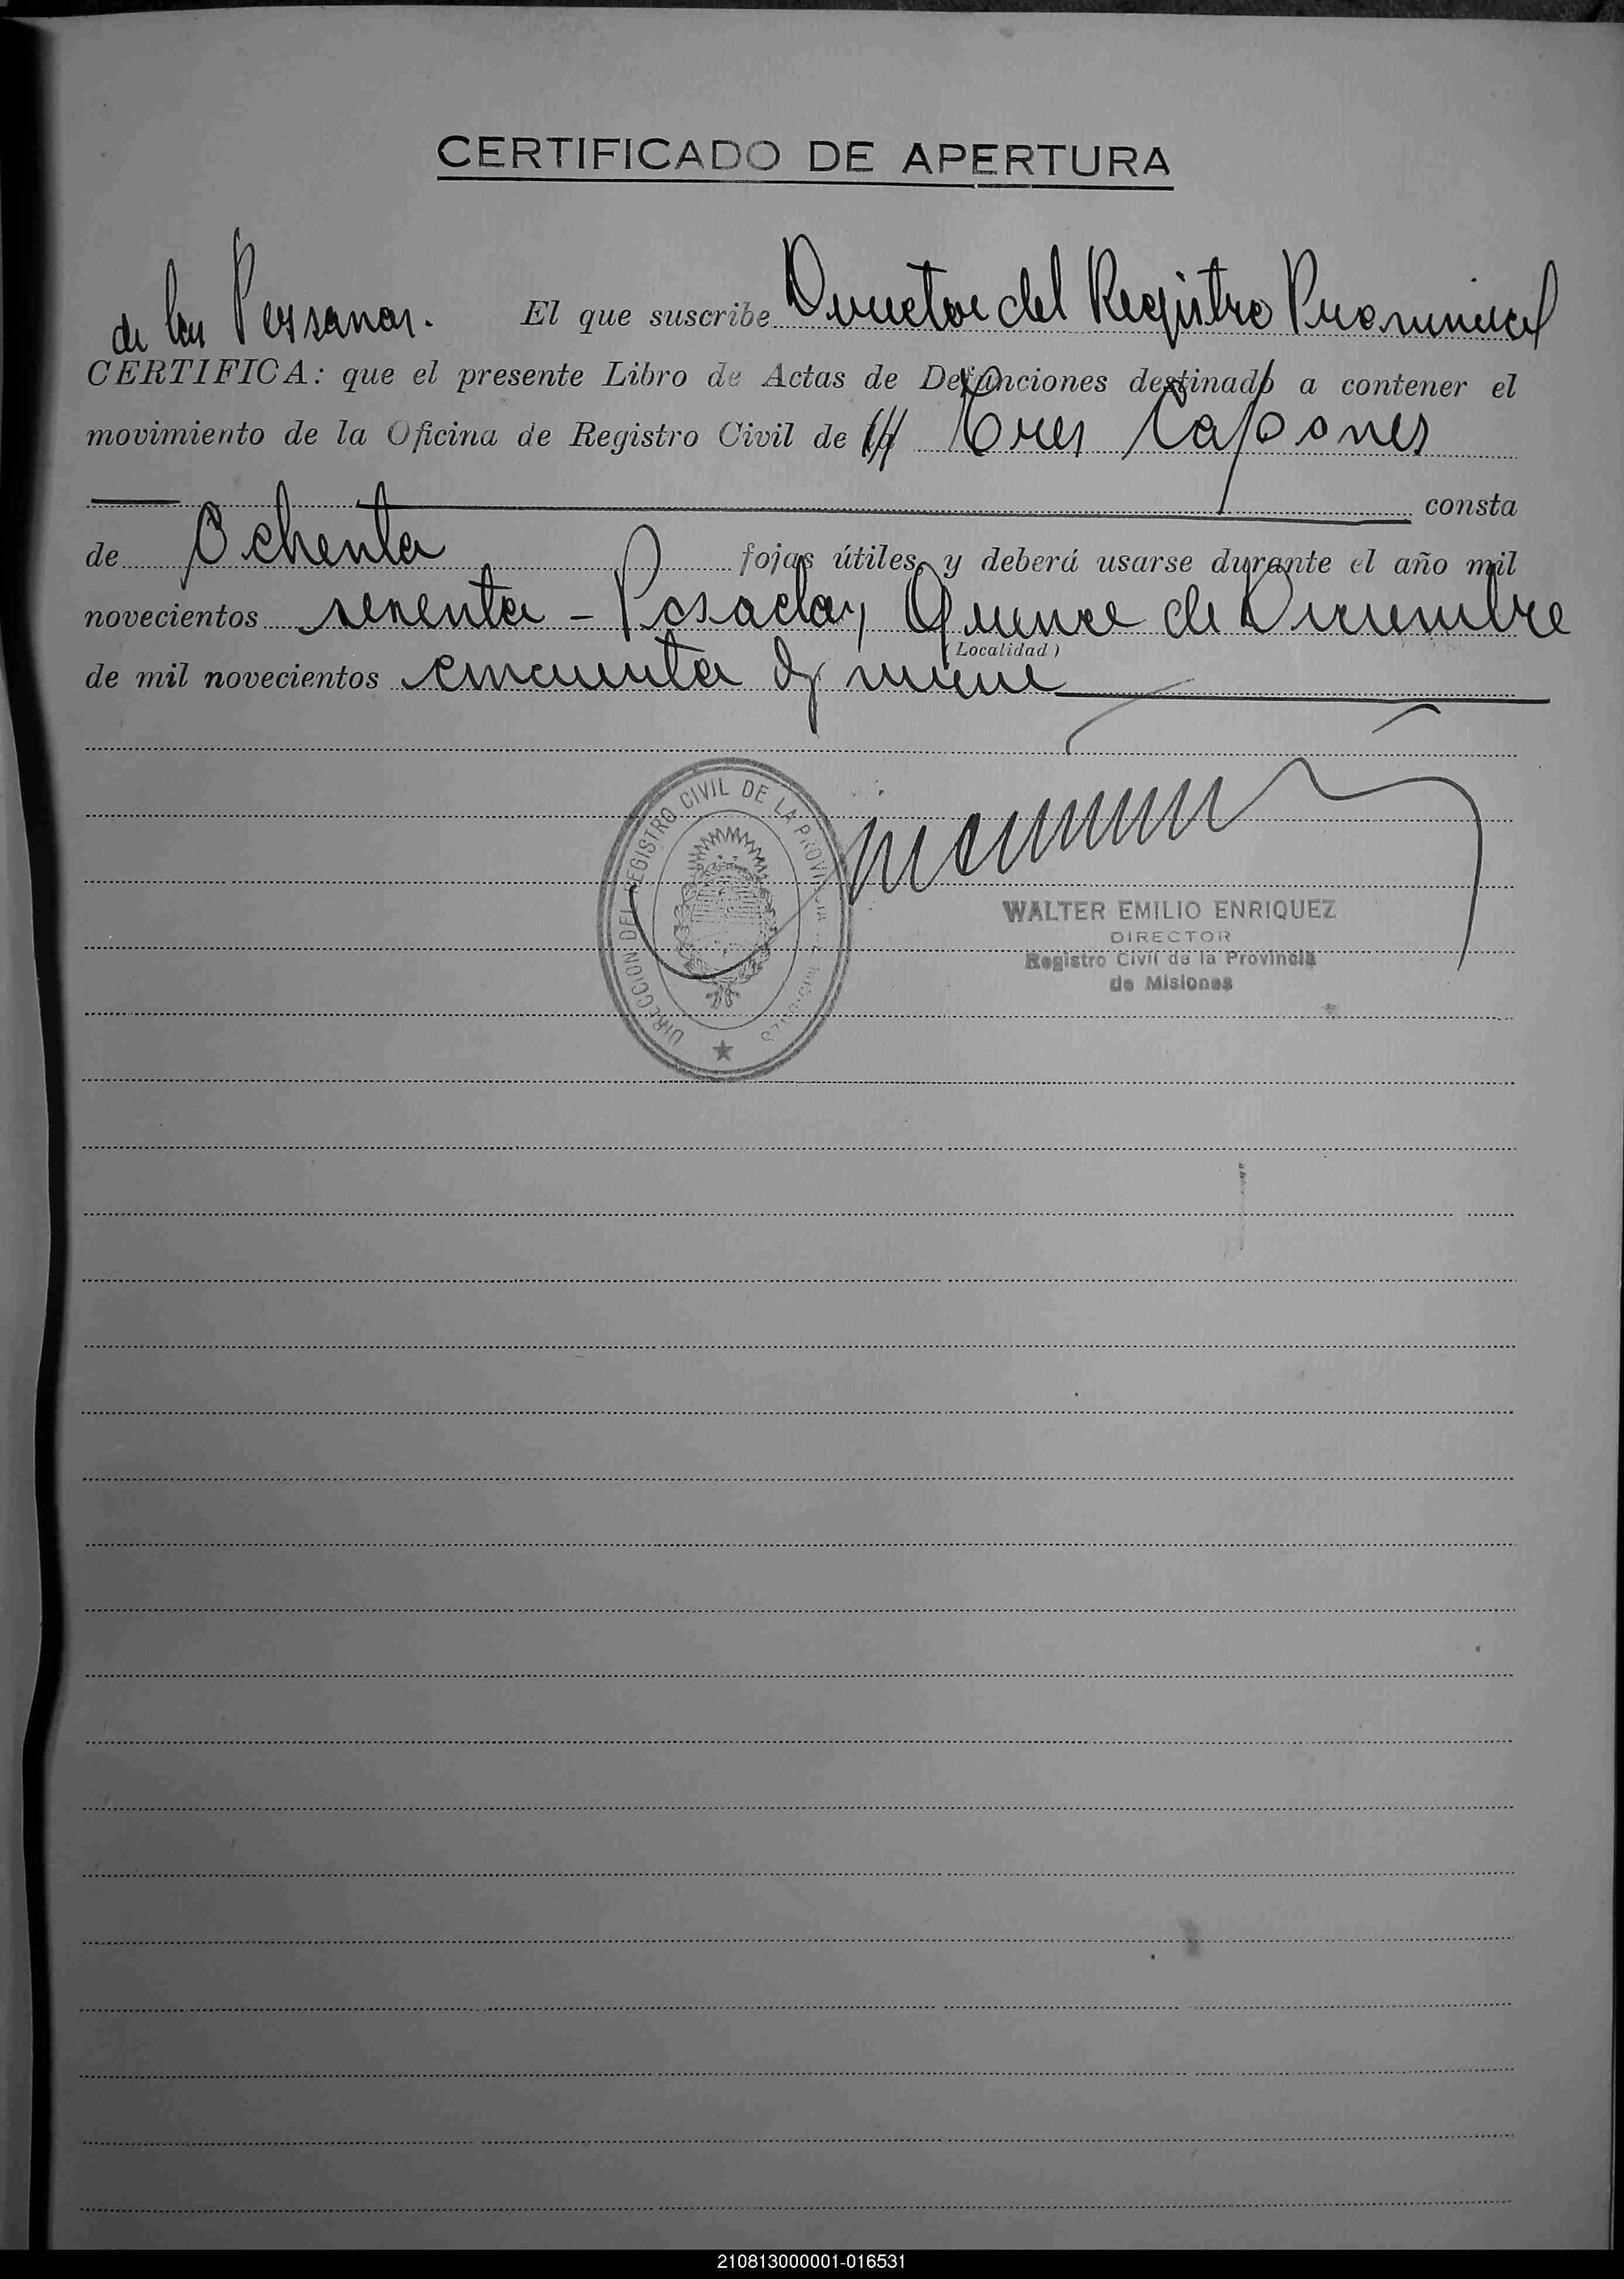 CERTIFICADO DE APERTURA
El que suscribe Director del Registro Provincial
de las Personas.
CERTIFICA: que el presente Libro de Actas de Defunciones destinado a contener el
movimiento de la Oficina de Registro Civil de Tres Capones
consta
de Ochenta fojas útiles, y deberá usarse durante el año mil
novecientos sesenta - Posadas, Quince de Diciembre
(Localidad)
de mil novecientos cincuenta y nueve
DIRECCION DEL REGISTRO CIVIL DE LA PROVINCIA DE MISIONES
WALTER EMILIO ENRIQUEZ
DIRECTOR
Registro Civil de la Provincia
de Misiones
210813000001-016531